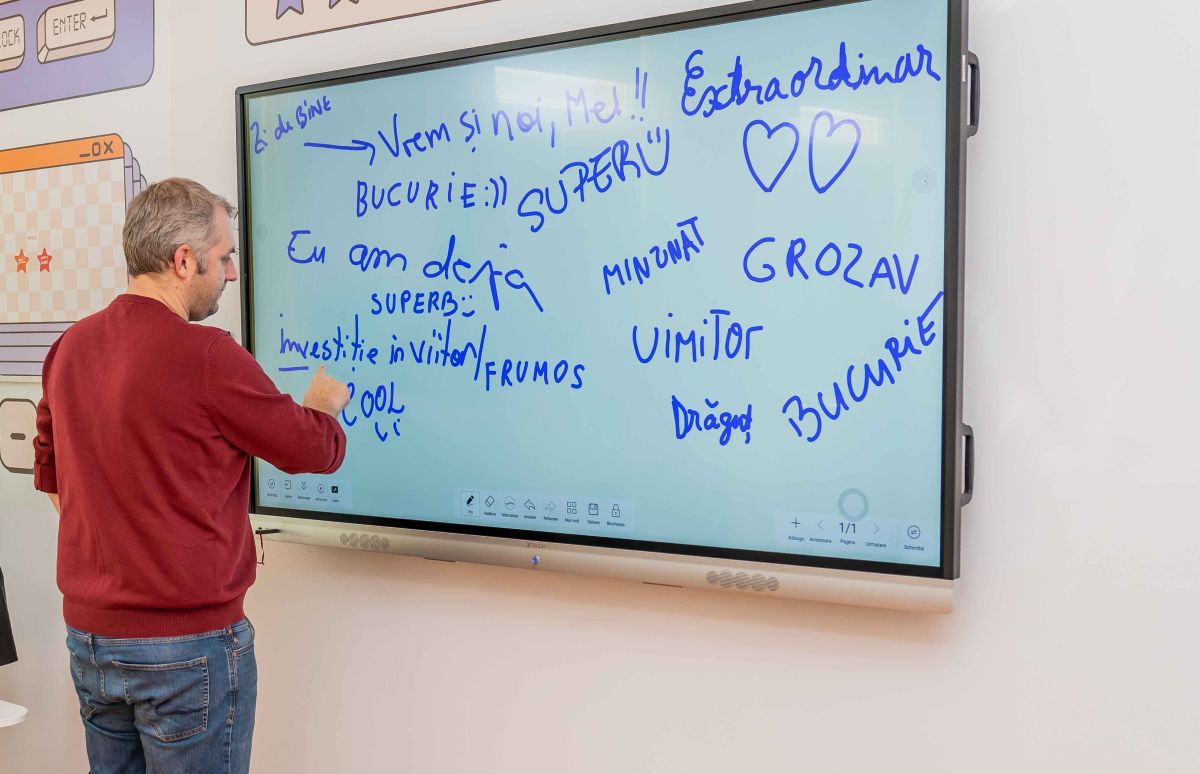 LOCK
ENTER
Zi de BiNE
Vrem și noi, Mel!!
Extraordinar
BUCURiE:))
SUPER
Eu am deja
SUPERB
MINUNAT
GROZAV
investiție in viitor/
FRUMOS
UiMiTOR
COOL
Drăguț
BUCURiE
1/1
Pagina